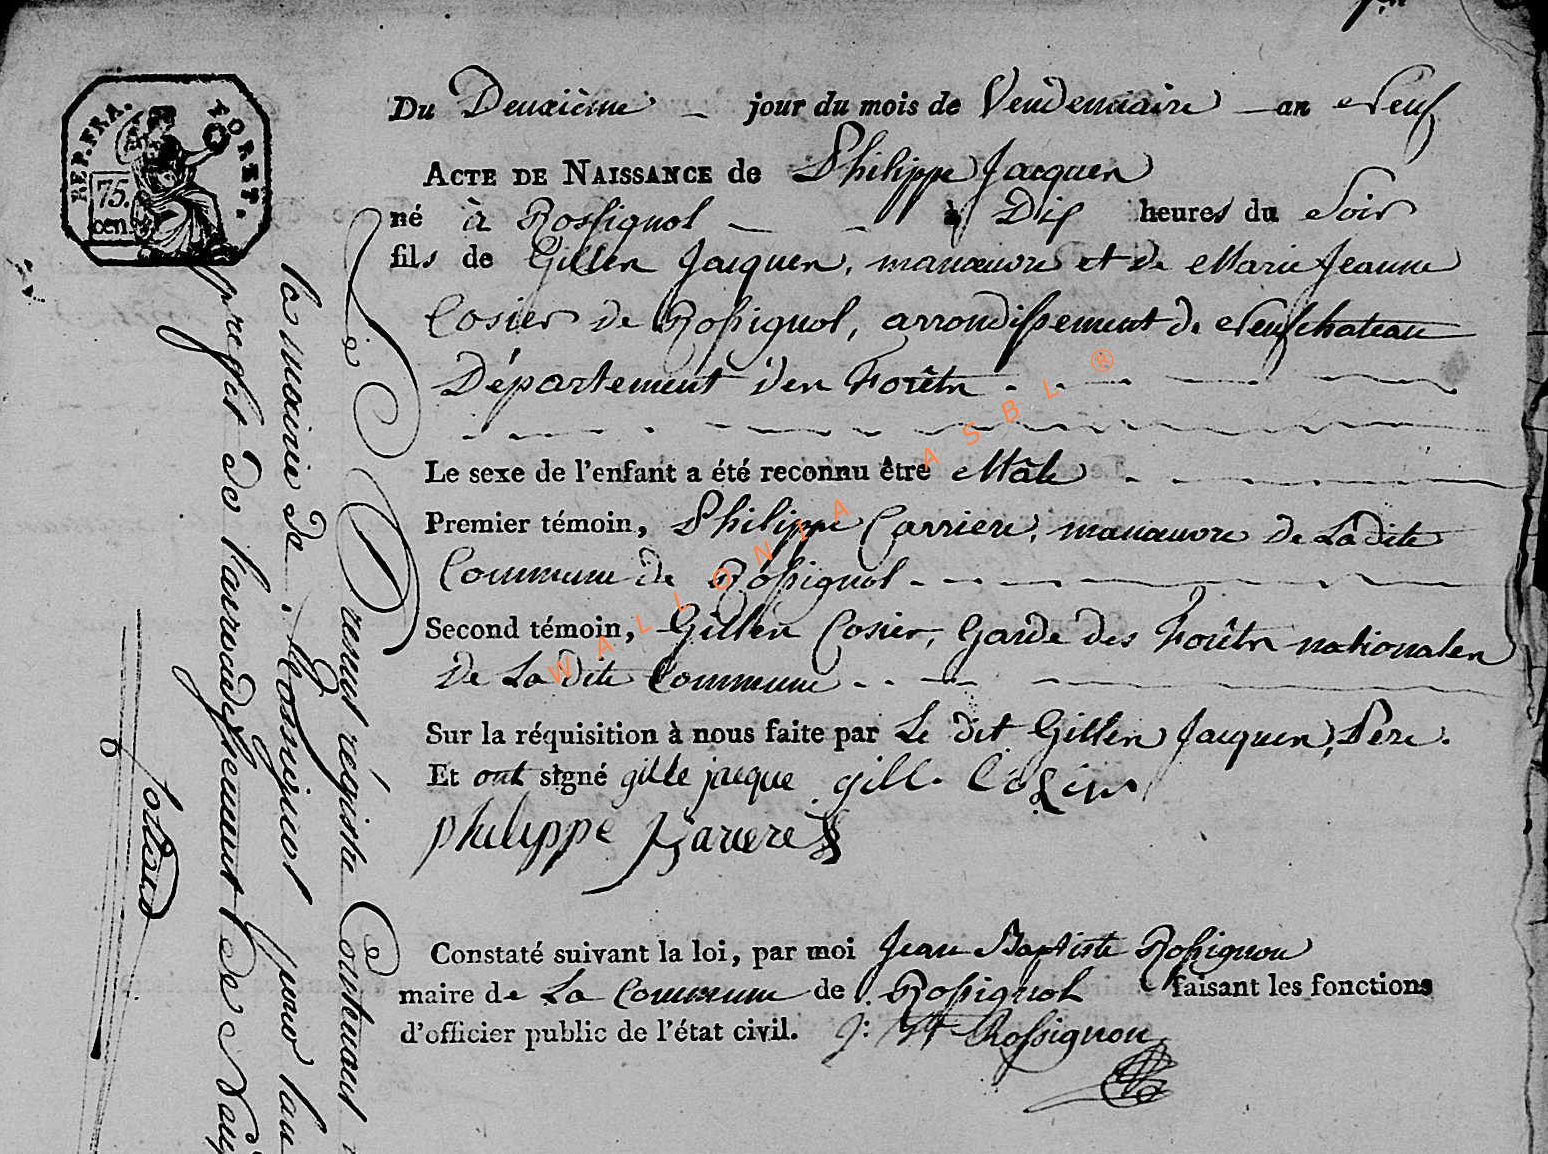 REP. FRA.
FORET.
75.
cen.
Du Deuxième jour du mois de Vendemiaire an Neuf
ACTE DE NAISSANCE de Philippe Jacques
né à Rossignol à Dix heures du Soir
fils de Gilles Jacques, manœuvre et de Marie Jeanne
Cosier de Rossignol, arrondissement de Neufchateau
Département des Forêts
Le sexe de l'enfant a été reconnu être Mâle
Premier témoin, Philippe Carriere, manœuvre de La dite
Commune de Rossignol
Second témoin, Gilles Cosier, Garde des Forêts nationales
de La dite Commune
Sur la réquisition à nous faite par Le dit Gilles Jacques, Pere.
Et ont signé gille jacque gill. Cozier
philippe karere
Constaté suivant la loi, par moi Jean Baptiste Rossignon
maire de La Commune de Rossignol faisant les fonctions
d'officier public de l'état civil. J: Bte Rossignon
Le Present régistre Contenant
la mairie de Rossignol pour l'an
prefet de l'arrondissement de
WALLONIA ASBL ®